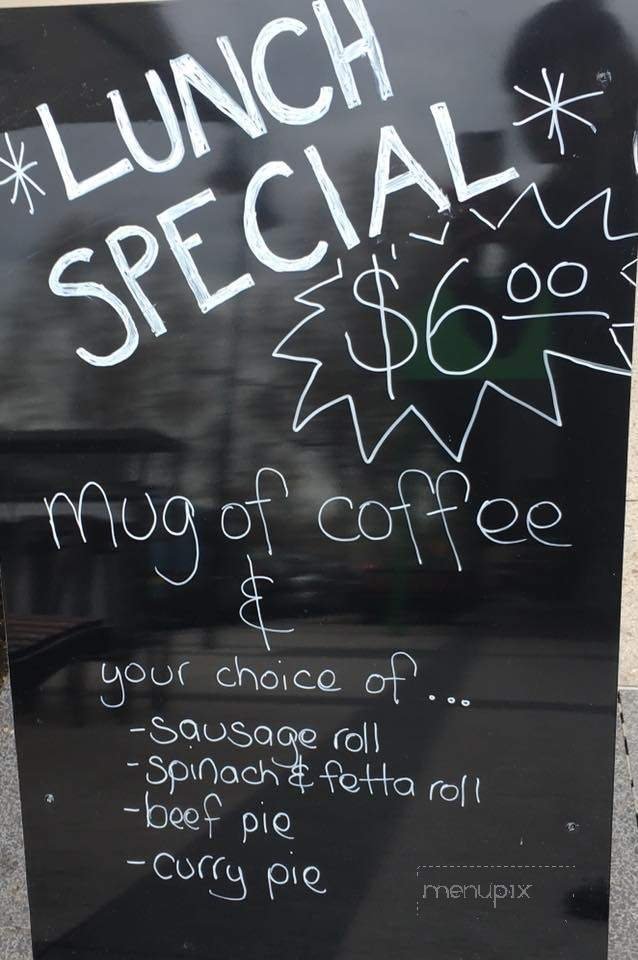 *LUNCH
SPECIAL*
$6.00
mug of coffee
&
your choice of...
-sausage roll
-spinach & fetta roll
-beef pie
-curry pie
menupix